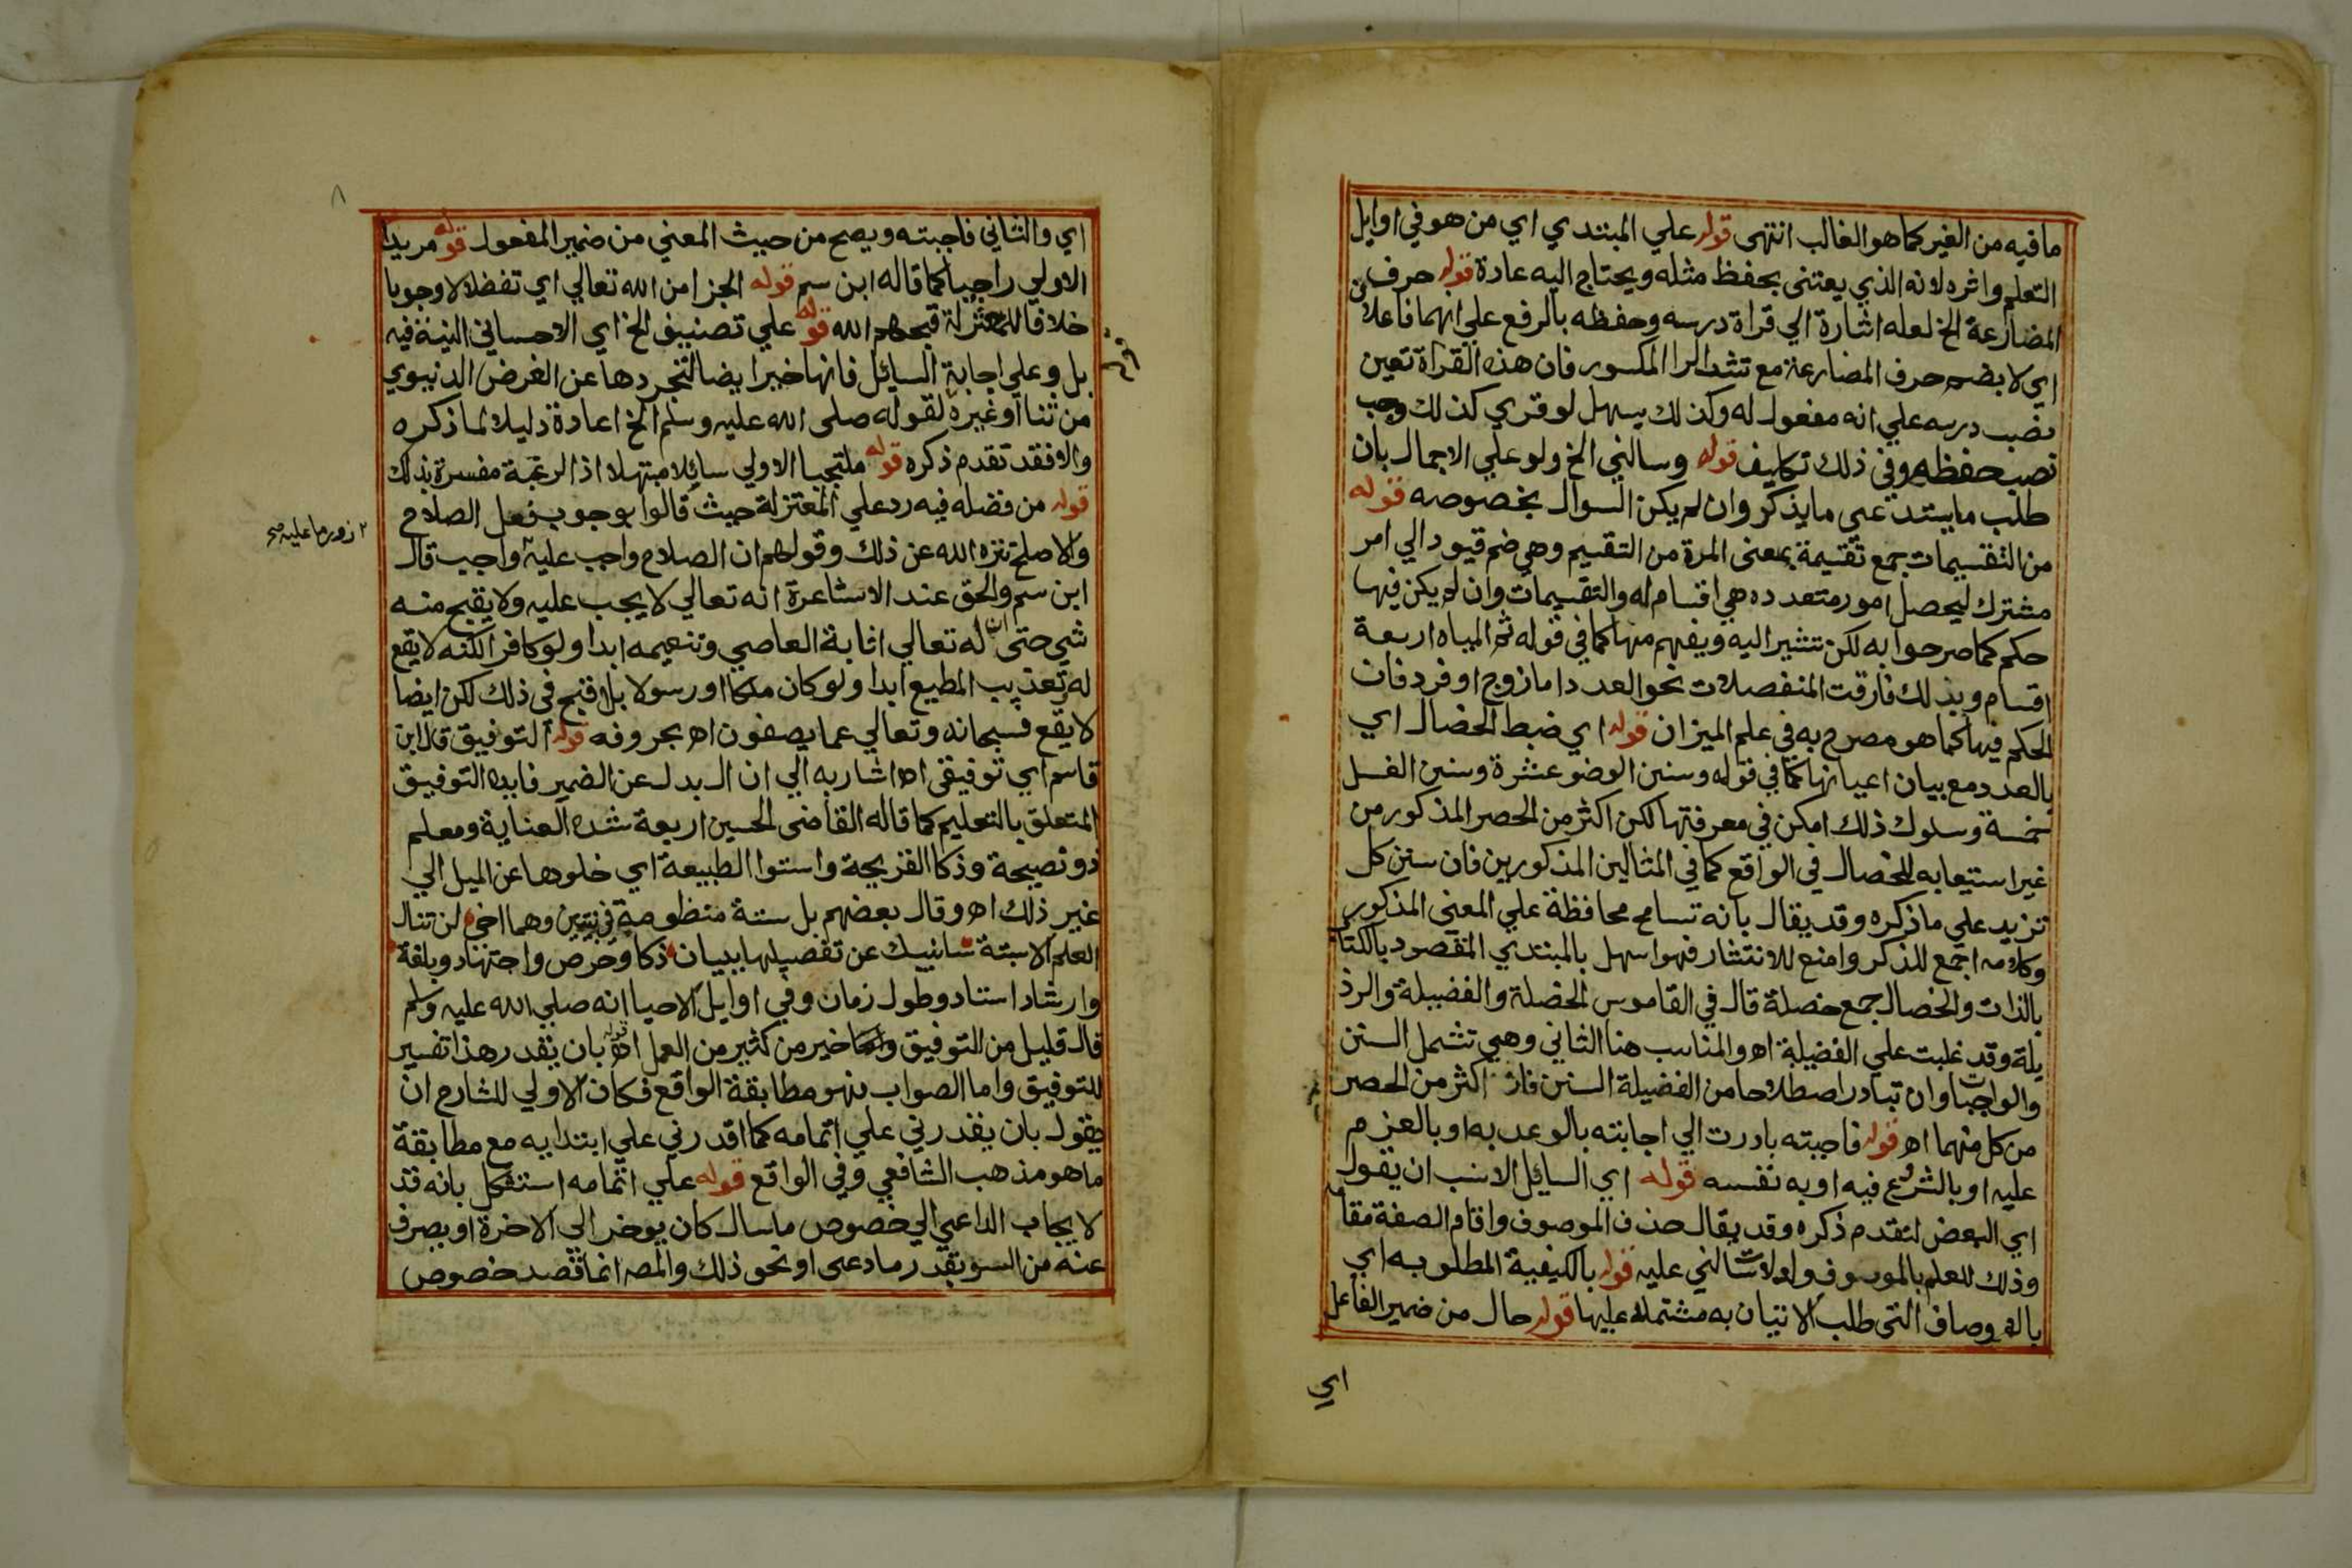 ما فيه من الغير كما هو الغالب انتهى قوله علي المبتدي اي من هو في اوايل
التعلم واثره لانه الذي يعتنى بحفظ مثله ويحتاج اليه عادة قوله حرف
المضارعة الخ لعله اشارة الي قراة درسه وحفظه بالرفع علي انهما فاعلان
اي لا بضم حرف المضارعة مع تشد الرا المكسور فان هذه القراة تعين
نصب درسه علي انه مفعول له وكذلك يسهل لو قري كذلك وجب
نصب حفظه وفي ذلك تكليف قوله وسالني الخ ولو علي الاجمال بان
طلب ما يستدعي ما يذكر وان لم يكن السوال بخصوصه قوله
من التقسيمات جمع تقسيمة بمعنى المرة من التقسيم وهي ضم قيود الي امر
مشترك ليحصل امور متعدده هي اقسام له والتقسيمات وان لم يكن فيها
حكم كما صرحوا به لكن تشير اليه ويفهم منها كما في قوله ثم المياه اربعة
اقسام وبذلك فارقت المنفصلات نحو العدد اما زوج او فرد فان
الحكم فيها كما هو مصرح به في علم الميزان قوله اي ضبط الخصال اي
بالعدد مع بيان اعيانها كما في قوله وسنن الوضو عشرة وسنن الغسل
خمسة وسلوك ذلك امكن في معرفتها لكن اكثر من الحصر المذكور من
غير استيعابه للخصال في الواقع كما في المثالين المذكورين فان سنن كل
تزيد علي ما ذكره وقد يقال بانه تسامح محافظة علي المعنى المذكور
وكلامه اجمع للذكر وامنع للانتشار فهو اسهل بالمبتدي المقصود بالكتاب
بالذات والخصال جمع خصلة قال في القاموس الخصلة والفضيلة والرذ
يلة وقد غلبت علي الفضيلة اه والمناسب هنا الثاني وهي تشمل السنن
والواجبات وان تبادر اصطلاحا من الفضيلة السنن فان اكثر من الحصر
من كل منهما اه قوله فاجبته بادرت الي اجابته بالوعد به او بالعزم
عليه او بالشروع فيه او به نفسه قوله اي السايل الانسب ان يقول
اي البعض لتقدم ذكره وقد يقال حذف الموصوف واقام الصفة مقامه
وذلك للعلم بالموسوف ولدلالة سالني عليه قوله بالكيفية المطلوبه اي
بالاوصاف التي طلب الاتيان به مشتمله عليها قوله حال من ضمير الفاعل
اي
٨
اي والثاني فاجبته ويصح من حيث المعني من ضمير المفعول قوله مريدا
الاولي راجيا كما قاله ابن سم قوله الجزا من الله تعالي اي تفضلا لا وجوبا
خلافا للمعتزلة قبحهم الله قوله علي تصنيف الخ اي الاحسان النية فيه
بل وعلي اجابة السايل فانها خير ايضا لتجردها عن الغرض الدنيوي
من ثنا او غيره لقوله صلى الله عليه وسلم الخ اعادة دليلا لما ذكره
والا فقد تقدم ذكره قوله ملتجيا الاولي سايلا مبتهلا اذ الرغبة مفسرة بذلك
قوله من فضله فيه رد علي المعتزلة حيث قالوا بوجوب فعل الصلاح
والاصلح تنزه الله عن ذلك وقولهم ان الصلاح واجب عليه واجب قال
ابن سم والحق عند الاشاعرة انه تعالي لا يجب عليه ولا يقبح منه
شي حتى ان له تعالي اثابة العاصي وتنعيمه ابدا ولو كافرا لكنه لا يقع
له تعذيب المطيع ابدا ولو كان ملكا او رسولا بلا قبح في ذلك لكن ايضا
لا يقع فسبحانه وتعالي عما يصفون اه بحروفه قوله التوفيق قال ابن
قاسم اي توفيقي اه اشار به الي ان ال بدل عن الضمير فايده التوفيق
المتعلق بالتعليم كما قاله القاضي الحسين اربعة شده العناية ومعلم
ذو نصيحة وذكا القريحة واستوا الطبيعة اي خلودها عن الميل الي
غير ذلك اه وقال بعضهم بل ستة منظومة في بيتين وهما اخي لن تنال
العلم الا بستة سانبيك عن تفصيلها ببيان ذكا وحرص واجتهاد وبلغة
وارشاد استاد وطول زمان وفي اوايل الاحيا انه صلي الله عليه وسلم
قال قليل من التوفيق خير من كثير من العمل اه قوله بان يقدر هذا تفسير
للتوفيق واما الصواب فهو مطابقة الواقع فكان الاولي للشارح ان
يقول بان يقدرني علي اتمامه كما اقدرني علي ابتدايه مع مطابقة
ما هو مذهب الشافعي وفي الواقع قوله علي اتمامه استشكل بانه قد
لا يجاب الداعي الي خصوص ما سال كان يوخر الي الاخرة او يصرف
عنه من السو بقدر ما دعى او نحو ذلك والمصه انما قصد خصوص